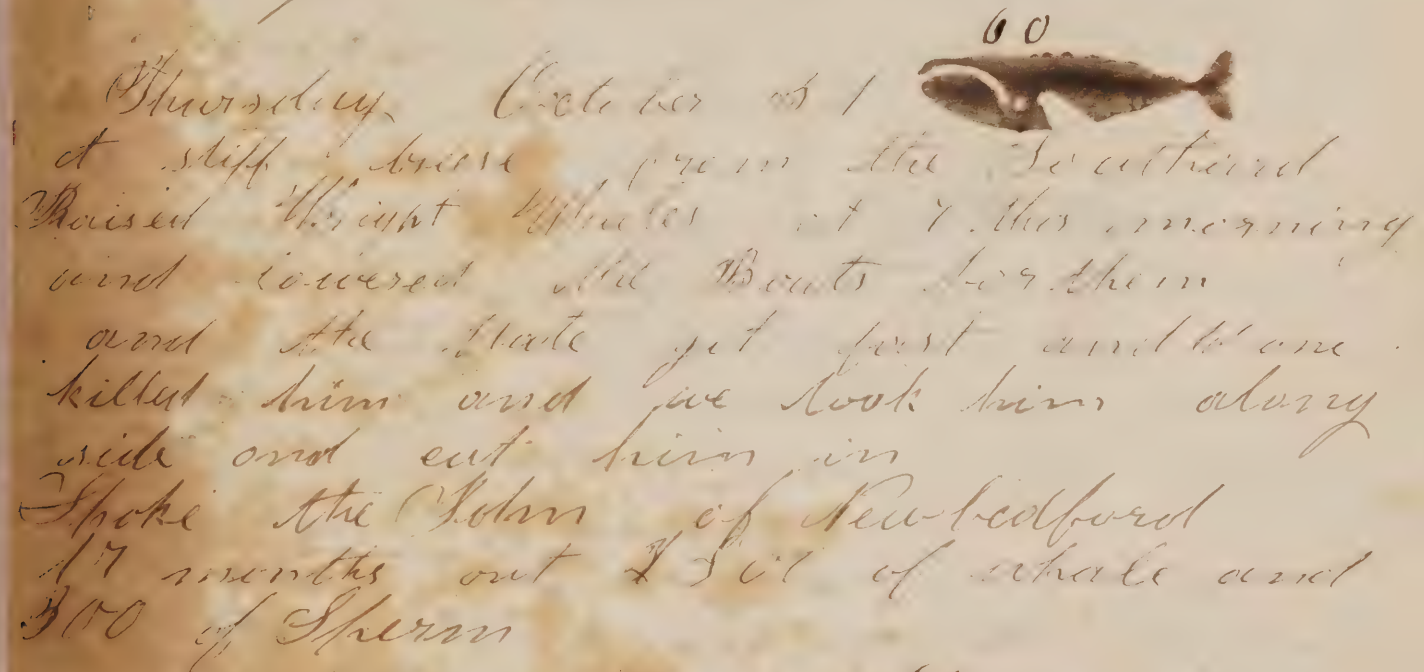 60
Thursday October
A stiff breese from the Southard
Raised Wright Whales at 7 this morning
and lowered the Boats for them
and the Mate got fast and
killed him and we took him along
side and cut him in
Spoke the John of Newbedford
17 months out of whale and
300 of Sperm